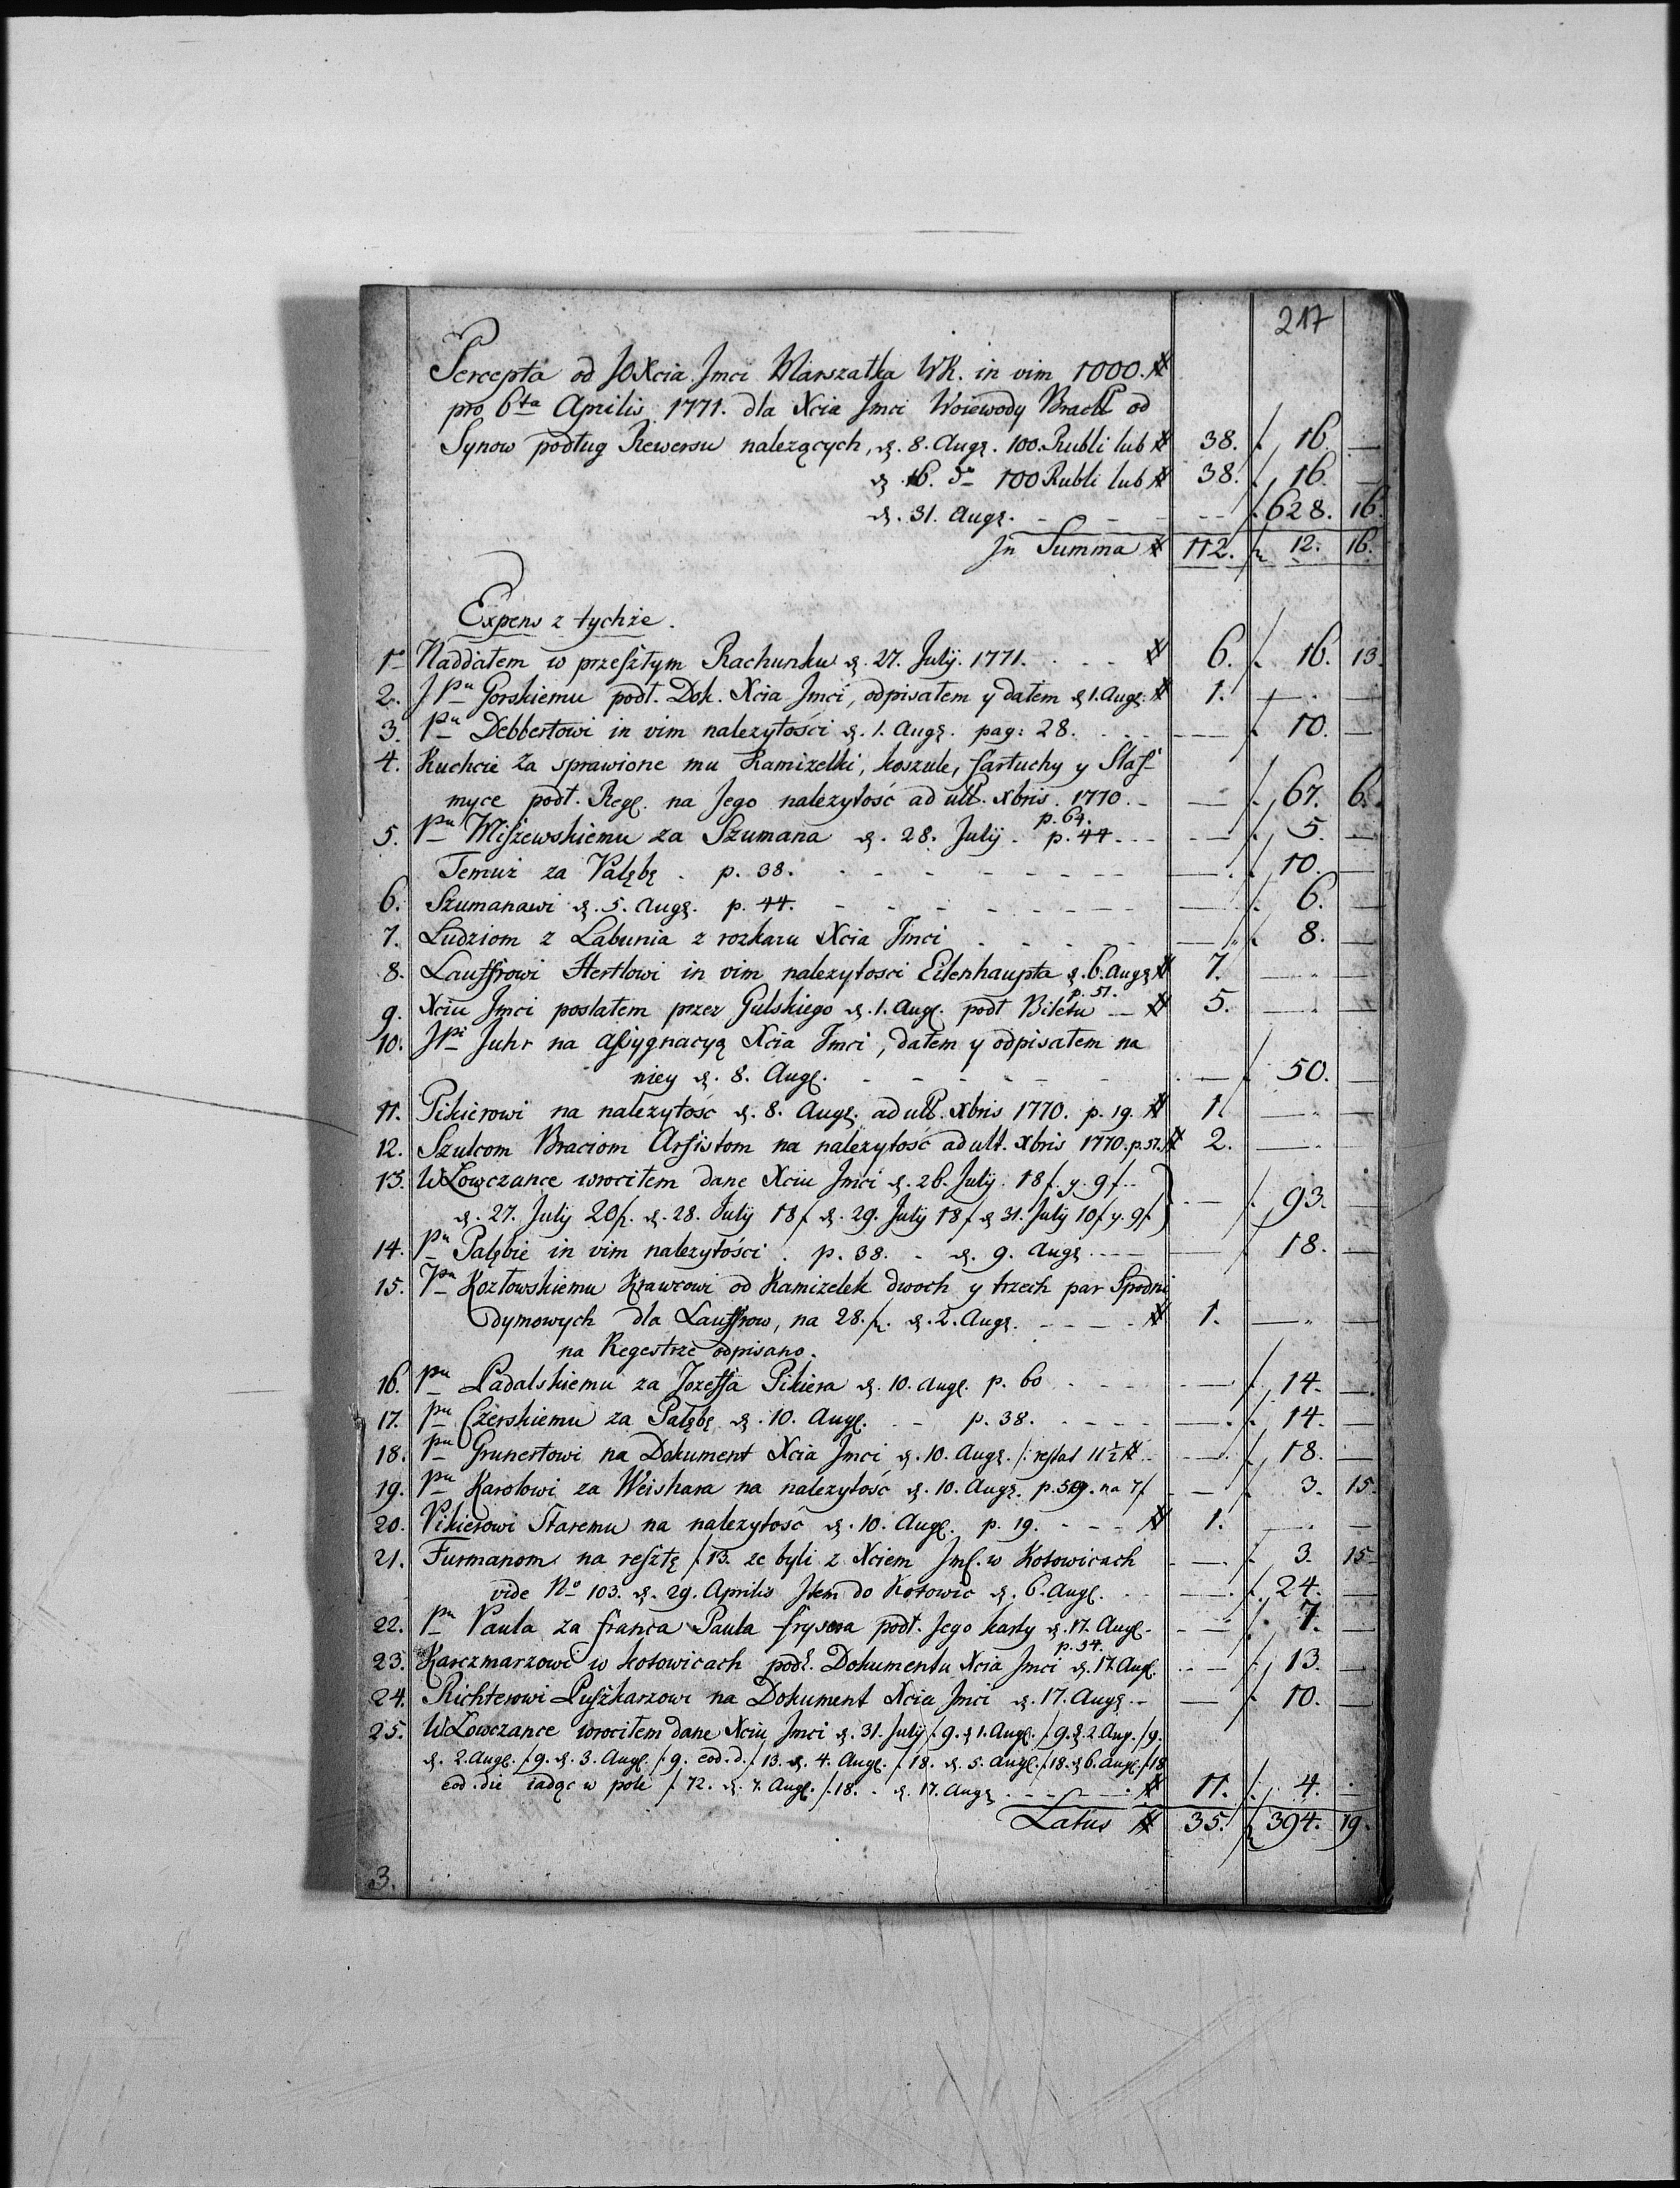 217
Percepta od JOXcia Jmci Marszałka WK. in vim 1000. #
pro 6ta Aprilis 1771. dla Xcia Jmci Woiewody Bracł od
Synow podług Rewersu należących, d. 8. Aug. 100. Rubli lub # 38. f. 16. —
d. 16. do 100 Rubli lub # 38. f. 16. —
d. 31. Aug. - - - f. 628. 16.
Jn Summa # 112. f. 12. 16.
Expens z tychże.
1o Naddałem w przeszłym Rachunku d. 27. July. 1771. # 6. f. 16. 13.
2. JPu Gorskiemu podł. Dok. Xcia Jmci, odpisałem y dałem d 1. Aug. # 1. — —
3. Pu Debbertowi in vim należytości d. 1. Aug. pag: 28. — f. 10. —
4. Kuchcie za sprawione mu Kamizelki, koszule, fartuchy y Slaf-
myce podł. Reg. na Jego należytość ad ult. xbris. 1770. — f. 67. 6.
p. 64.
5. Pu Miszewskiemu za Szumana d. 28. July. p. 44. — f. 5. —
Temuż za Palębę. p. 38. — f. 10. —
6. Szumanowi d. 5. Aug. p. 44. — f. 6. —
7. Ludziom z Labunia z rozkazu Xcia Jmci — f. 8. —
8. Lauffrowi Hertlowi in vim należytosci Eilenhaupta d. 6. Aug # 7. — —
p. 51.
9. Xciu Jmci posłałem przez Gulskiego d. 1. Aug. podł Biletu — # 5. — —
10. JPi Juhr na assygnacyą Xcia Jmci, dałem y odpisałem na
niey d. 8. Aug. — f. 50. —
11. Pikierowi na należytość d. 8. Aug. ad ult. xbris 1770. p. 19. # 1. — —
12. Szulcom Braciom Arfistom na należytość ad ult. xbris 1770. p. 57. # 2. — —
13. WŁowczance wrociłem dane Xciu Jmci d. 26. July. 18 f. y. 9 f.
d. 27. July 20 f. d. 28. July 18 f d. 29. July 18 f d 31. July 10 f y. 9 f — f. 93. —
14. Pu Palębie in vim należytości. p. 38. - d. 9. Aug — f. 18. —
15. JPu Kozłowskiemu Krawcowi od Kamizelek dwoch y trzech par Spodni
dymowych dla Lauffrow, na 28. f. d. 2. Aug. # 1. — —
na Regestrze odpisano.
16. Pu Padalskiemu za Jozeffa Pikiera d. 10. Aug. p. 60 — f. 14. —
17. Pu Czerskiemu za Palębę d. 10. Aug. - p. 38. — f. 14. —
18. Pu Grunertowi na Dokument Xcia Jmci d. 10. Aug. /: restat 11 ½ # — f. 18. —
19. Pu Karolowi za Weishara na należytość d. 10. Aug. p. 59. na 7 f — f. 3. 15.
20. Pikierowi Staremu na należytość d. 10. Aug. p. 19. # 1. — —
21. Furmanom na resztę f. 13. ze byli z Xciem Jmć. w Kotowicach — f. 3. 15
vide No 103. d. 29. Aprilis Jtem do Kotowic d. 6. Aug. — f. 24. —
22. Pu Paula za Franca Paula frysera podł. Jego karty d. 17. Aug. — f. 7. —
p. 54.
23. Karczmarzowi w Kotowicach podł. Dokumentu Xcia Jmci d. 17. Aug. — f. 13. —
24. Richterowi Puszkarzowi na Dokument Xcia Jmci d. 17. Aug. — f. 10. —
25. WŁowczance wrociłem dane Xciu Jmci d. 31. July f. 9. d 1. Aug. f. 9. d 2 Aug. f 9.
d. 2. Aug. f. 9. d. 3. Aug. f. 9. eod. d. f. 13. d. 4. Aug. f. 18. d. 5. Aug. f. 18. d 6. Aug. f. 18
eod. die iadąc w pole f. 72. d. 7. Aug. f. 18. - d. 17. Aug # 11. f. 4. —
Latus # 35. f. 394. 19.
3.